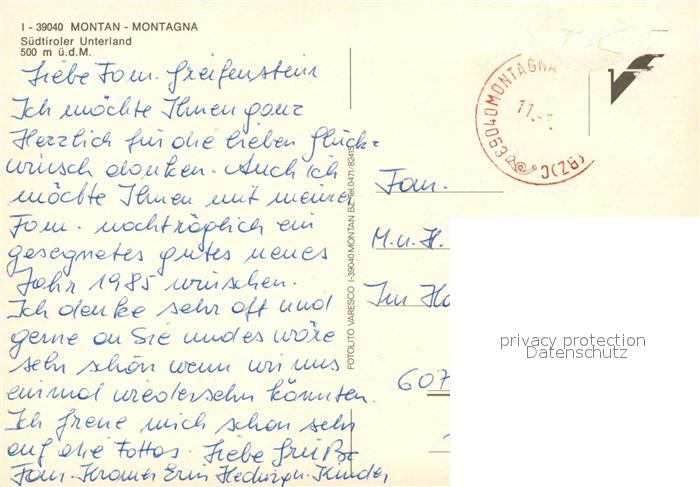 I - 39040 MONTAN - MONTAGNA
Südtiroler Unterland
500 m ü.d.M.
Liebe Fam. Greifenstein
Ich möchte Ihnen ganz
Herzlich für die lieben Glück=
wünsch danken. Auch ich
möchte Ihnen mit meiner
Fam. nachträglich ein
gesegnetes gutes neues
Jahr 1985 wünschen.
Ich denke sehr oft und
gerne an Sie und es wäre
sehr schön wenn wir uns
einmal wiedersehn könnten.
Ich freue mich schon sehr
auf die Fottos. Liebe Grüße
Fam. Kramer Erin Hedwig. Kinder
FOTOLITO VARESCO I-39040 MONTAN BZ Tel. 0471/82415
39040 MONTAGNA
(BZ)C
11.-1.
Fam.
M. u. H.
Im Ho
607
privacy protection
Datenschutz